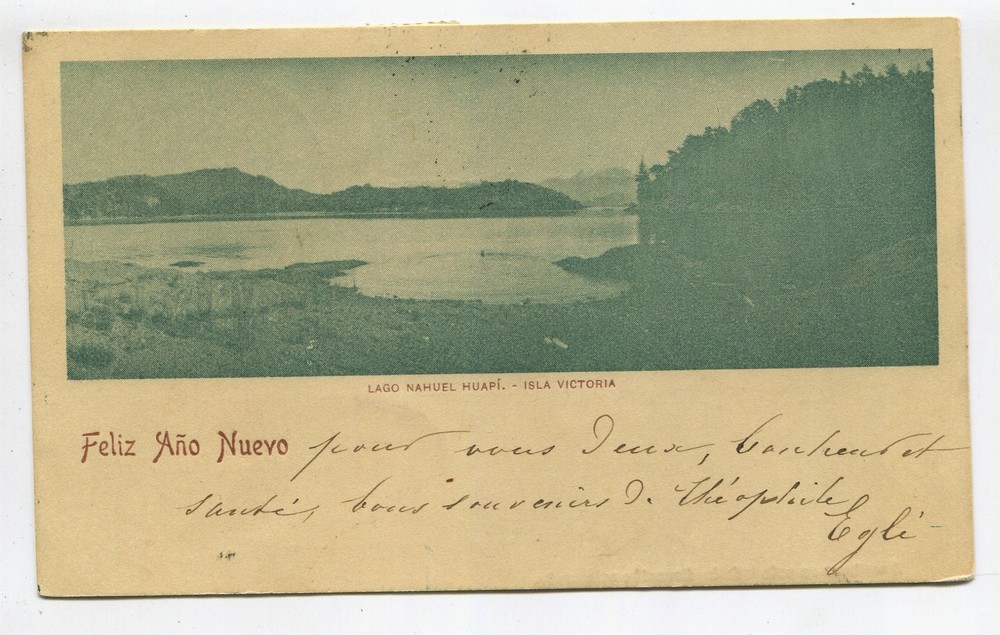 LAGO NAHUEL HUAPÍ. - ISLA VICTORIA
Feliz Año Nuevo pour vous Deux, bonheur et
santé, bons souvenirs De Théophile
Eglé